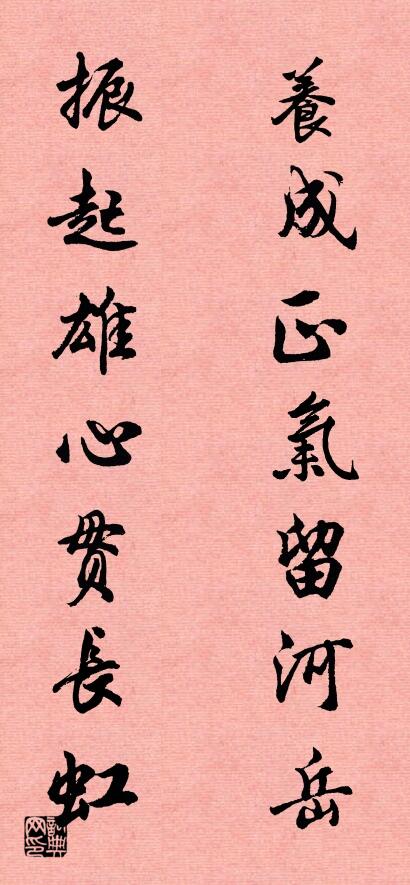 養成正氣留河岳
振起雄心貫長虹